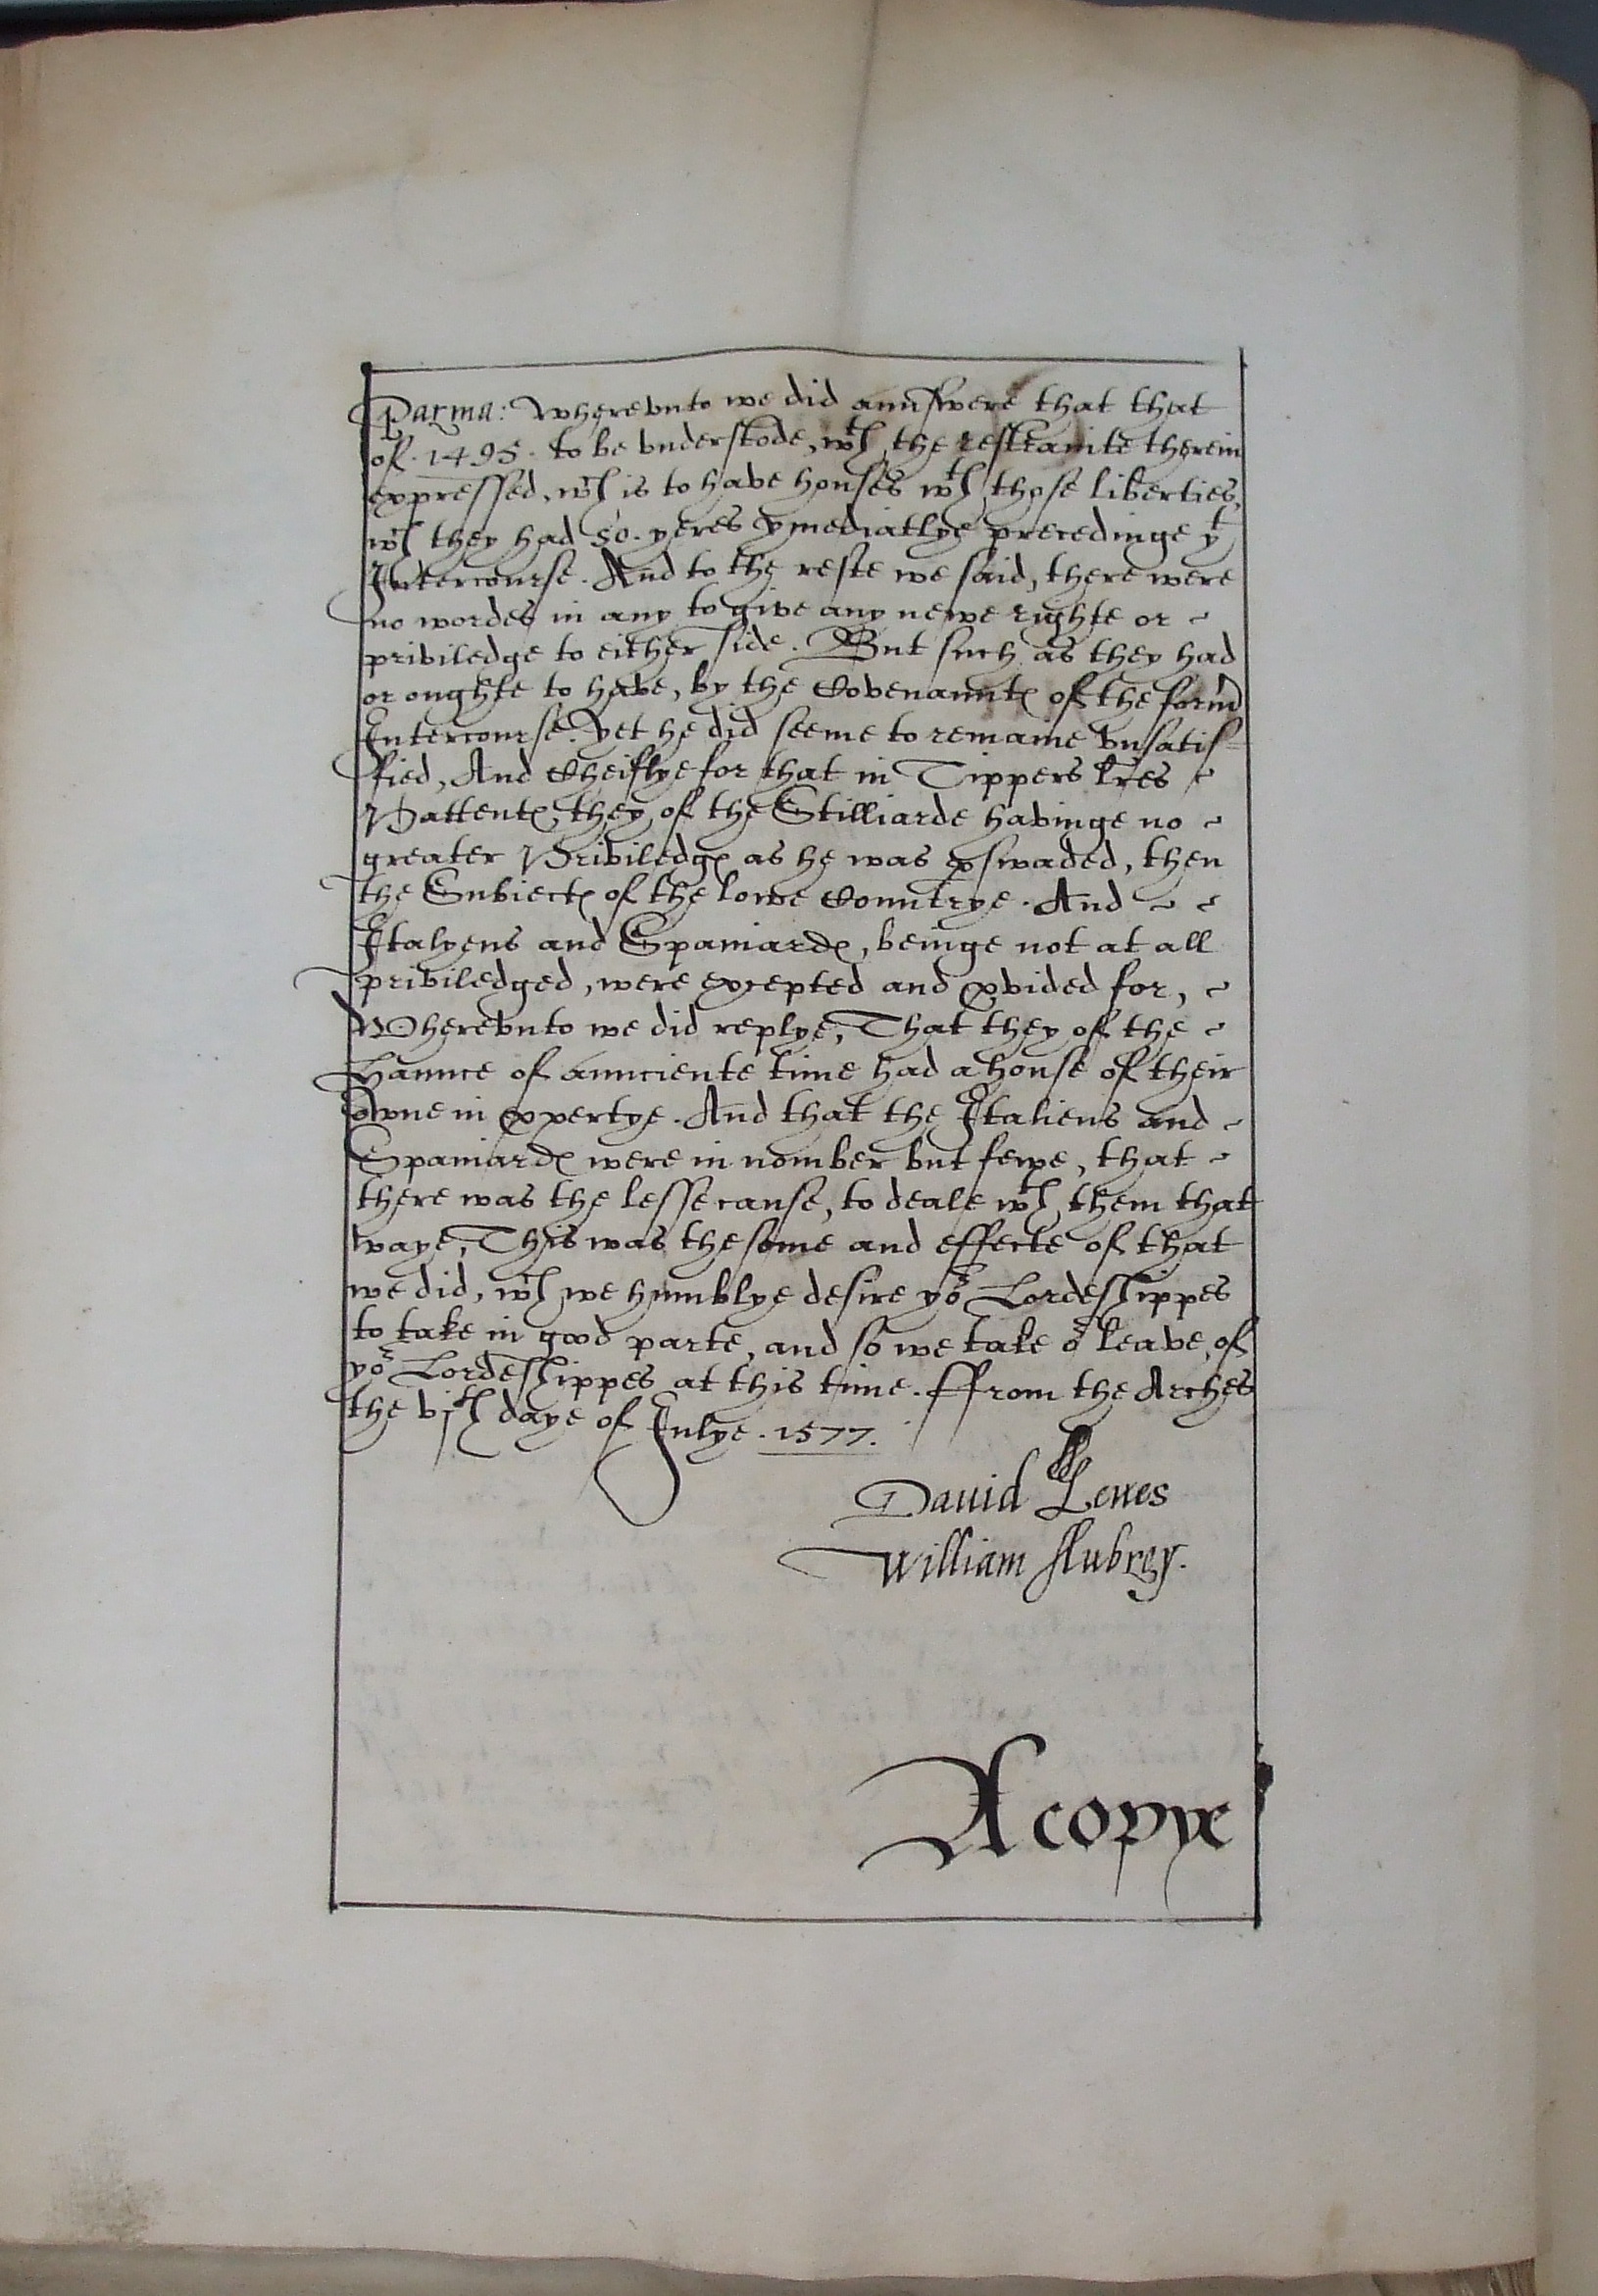 Parma: Wherevnto we did aunswere that that
of. 1495. to be vnderstode, wth the restrainte therein
expressed, wch is to have houses wth those liberties,
wch they had 50. yeres ymediatlye precedinge yt
Intercourse. And to the reste we said, there were
no wordes in any to give any newe righte or
priviledge to either side. But such as they had
or oughte to have, by the Covenauntes of the former
Intercourse. Yet he did seeme to remaine vnsatis=
fied, And Cheiflye for that in Tippers lres
Pattentes, they of the Stilliarde havinge no
greater Priviledges as he was pswaded, then
the Subiectes of the lowe Countrye. And
Italyens and Spaniardes, beinge not at all
priviledged, were excepted and pvided for,
Wherevnto we did replye, That they of the
Haunce of aunciente time had a house of their
owne in ppertye. And that the Italiens and
Spaniardes were in nomber but fewe, that
there was the lesse cause, to deale wth them that
waye, This was the some and effecte of that
we did, wch we humblye desire yor Lordeshippes
to take in good parte, and so we take or leave, of
yor Lordeshippes at this time. ffrom the Arches
the vjth daye of Julye. 1577.
David Lewes
William Aubrey.
A copye